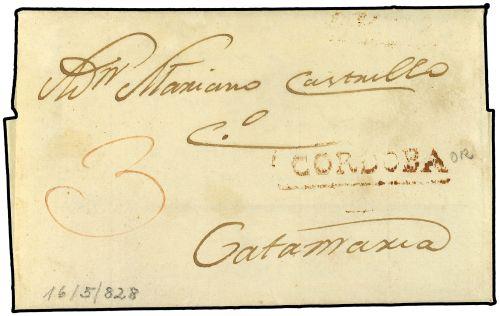 A Dn Mariano Castrillo
C.o
3
CORDOBA OR
Catamarca
16/5/828